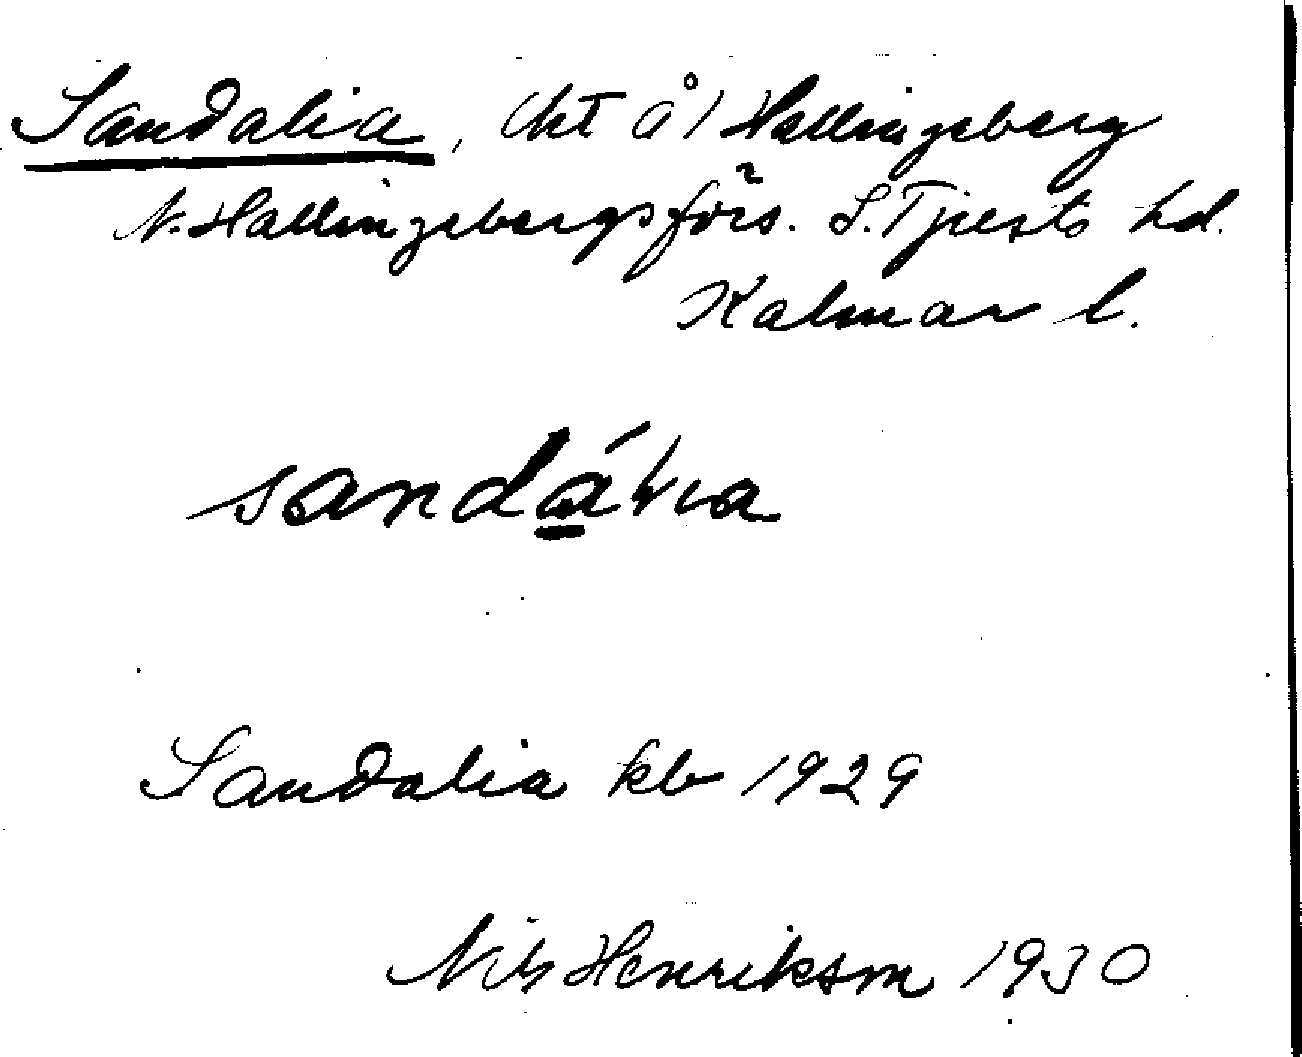 Sandalia, (ht å) Hallingeberg
N. Hallingebergs förs. S. Tjusts hd.
Kalmar l.
sandália
Sandalia kb 1929
Nils Henrikson 1930